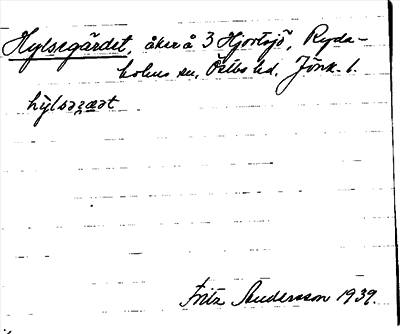 Hylsegärdet, åker å 3 Hjortsjö, Ryda-
holms sn, Östbo hd, Jönk. l.
hylsəgæət
Fritz Andersson 1939.